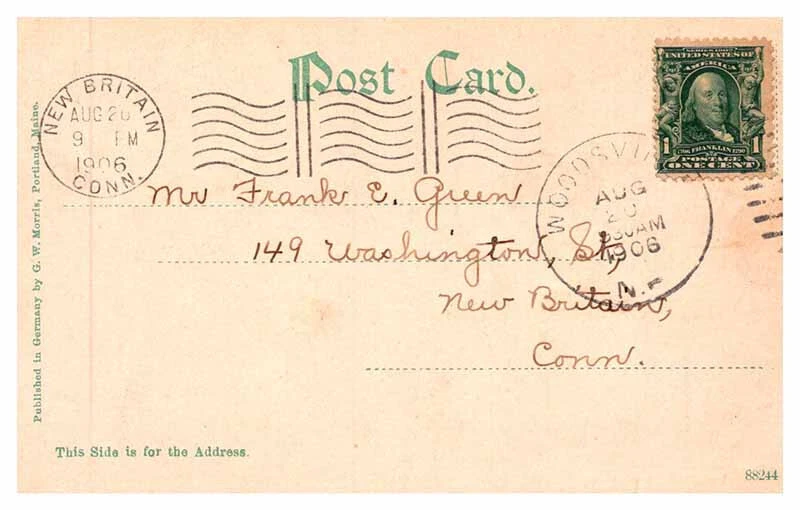 Post Card.
NEW BRITAIN
AUG 20
9 PM
1906
CONN.
SERIES 1902
UNITED STATES OF
AMERICA
1 1706 FRANKLIN 1790 1
POSTAGE
ONE CENT
AUG
20
AM
1906
N.
Mr Frank E. Green
149 Washington, St,
New Britain,
Conn.
Published in Germany by G. W. Morris, Portland, Maine.
This Side is for the Address.
88244